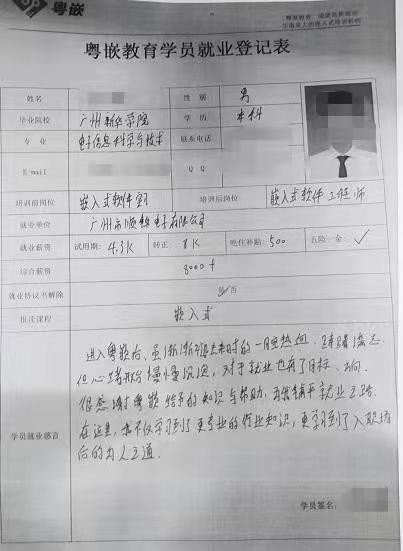 粤嵌
粤嵌教育学员就业登记表
姓名 性别 男
毕业院校 广州新华学院 学历 本科
专业 电子信息科学与技术 联系电话
E-mail QQ
培训前岗位 嵌入式软件 培训后岗位 嵌入式软件工程师
就业单位 广州市顺 电子有限公司
就业薪资 试用期: 4.3K 转正 8K 吃住补贴: 500 五险一金 ✓
综合薪资 8000+
就业协议书解除 是/否
报读课程 嵌入式
学员就业感言
进入粤嵌后,虽渐渐 去来时的一腔热血、踌躇满志
但心 慢慢沉 ,对于就业也有了目标、方向。
很感谢粤嵌给予的知识与帮助,为我铺平就业之路。
在这里,我不仅学习到了更专业的 业知识,更学习到了入职场
后的为人之道。
学员签名: